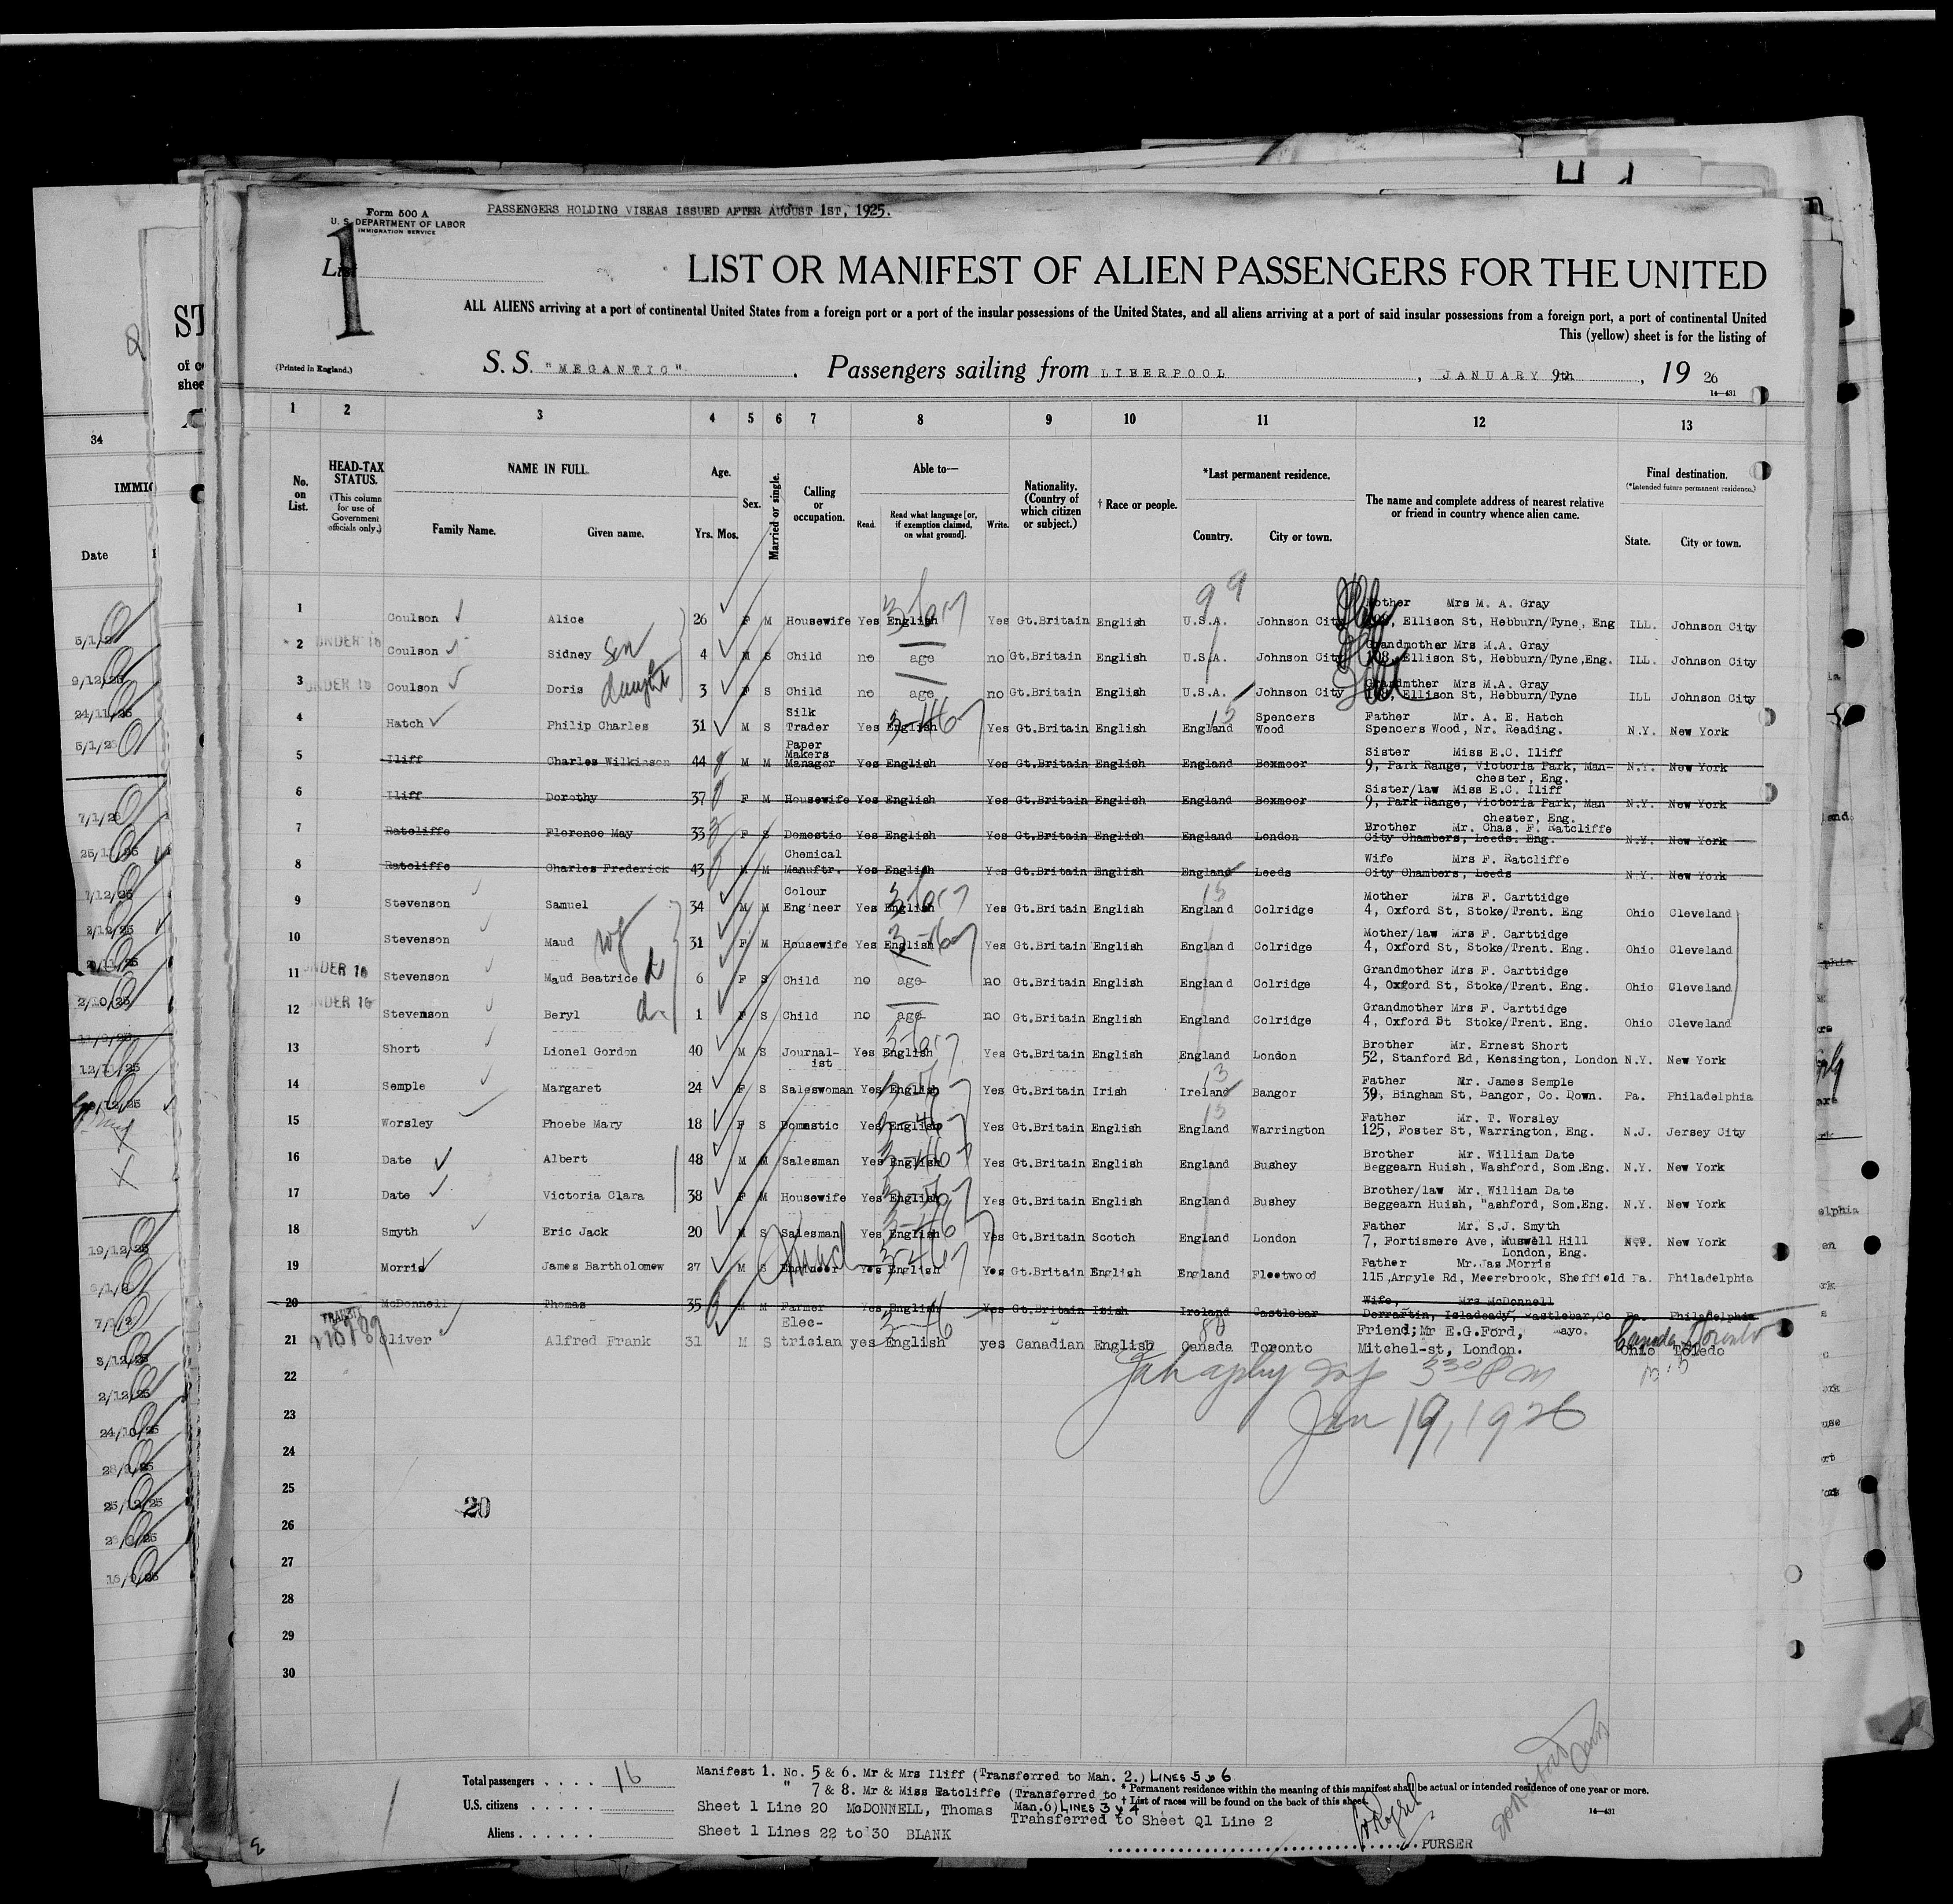 Form 500 A
U. S. DEPARTMENT OF LABOR
IMMIGRATION SERVICE
PASSENGERS HOLDING VISEAS ISSUED AFTER AUGUST 1ST, 1925.
List
1
LIST OR MANIFEST OF ALIEN PASSENGERS FOR THE UNITED
ALL ALIENS arriving at a port of continental United States from a foreign port or a port of the insular possessions of the United States, and all aliens arriving at a port of said insular possessions from a foreign port, a port of continental United
This (yellow) sheet is for the listing of
(Printed in England.)
S. S. "MEGANTIC" . Passengers sailing from LIBERPOOL , JANUARY 9th , 19 26
14—431
1 2 3 4 5 6 7 8 9 10 11 12 13
No. on List.
HEAD-TAX STATUS.
(This column for use of Government officials only.)
NAME IN FULL.
Family Name. Given name.
Age.
Yrs. Mos.
Sex.
Married or single.
Calling or occupation.
Able to—
Read. Read what language [or, if exemption claimed, on what ground]. Write.
Nationality. (Country of which citizen or subject.)
† Race or people.
*Last permanent residence.
Country. City or town.
The name and complete address of nearest relative or friend in country whence alien came.
Final destination.
(*Intended future permanent residence.)
State. City or town.
99
1 Coulson Alice 26 F M Housewife Yes English Yes Gt.Britain English U.S.A. Johnson City Mother Mrs M. A. Gray
Ellison St, Hebburn/Tyne, Eng ILL. Johnson City
2 UNDER 16 Coulson Sidney Son 4 M S Child no age no Gt.Britain English U.S.A. Johnson City Grandmother Mrs M.A. Gray
108, Ellison St, Hebburn/Tyne,Eng. ILL. Johnson City
3 UNDER 16 Coulson Doris daught 3 F S Child no age no Gt.Britain English U.S.A. Johnson City Grandmther Mrs M.A. Gray
Ellison St, Hebburn/Tyne ILL Johnson City
4 Hatch Philip Charles 31 M S Silk Trader Yes English Yes Gt.Britain English England Spencers Wood Father Mr. A. E. Hatch
Spencers Wood, Nr. Reading. N.Y. New York
5 Iliff Charles Wilkinson 44 M M Paper Makers Manager Yes English Yes Gt.Britain English England Boxmoor Sister Miss E.C. Iliff
9, Park Range, Victoria Park, Man-
chester, Eng. N.Y. New York
6 Iliff Dorothy 37 F M Housewife Yes English Yes Gt.Britain English England Boxmoor Sister/law Miss E.C. Iliff
9, Park Range, Victoria Park, Man
chester, Eng. N.Y. New York
7 Ratcliffe Florence May 33 F S Domestic Yes English Yes Gt.Britain English England London Brother Mr. Chas. F. Ratcliffe
City Chambers, Leeds. Eng. N.Y. New York
8 Ratcliffe Charles Frederick 43 M M Chemical Manuftr. Yes English Yes Gt.Britain English England Leeds Wife Mrs F. Ratcliffe
City Chambers, Leeds N.Y. New York
9 Stevenson Samuel 34 M M Colour Eng'neer Yes English Yes Gt.Britain English England Colridge Mother Mrs F. Carttidge
4, Oxford St, Stoke/Trent. Eng Ohio Cleveland
10 Stevenson Maud wf 31 F M Housewife Yes English Yes Gt.Britain English England Colridge Mother/law Mrs F. Carttidge
4, Oxford St, Stoke/Trent. Eng. Ohio Cleveland
11 UNDER 16 Stevenson Maud Beatrice d 6 F S Child no age no Gt.Britain English England Colridge Grandmother Mrs F. Carttidge
4, Oxford St, Stoke/Trent. Eng. Ohio Cleveland
12 UNDER 16 Stevenson Beryl d. 1 F S Child no age no Gt.Britain English England Colridge Grandmother Mrs F. Carttidge
4, Oxford St Stoke/Trent. Eng. Ohio Cleveland
13 Short Lionel Gordon 40 M S Journal-ist Yes English Yes Gt.Britain English England London Brother Mr. Ernest Short
52, Stanford Rd, Kensington, London N.Y. New York
14 Semple Margaret 24 F S Saleswoman Yes English Yes Gt.Britain Irish Ireland Bangor Father Mr. James Semple
39, Bingham St, Bangor, Co. Down. Pa. Philadelphia
15 Worsley Phoebe Mary 18 F S Domestic Yes English Yes Gt.Britain English England Warrington Father Mr. T. Worsley
125, Foster St, Warrington, Eng. N.J. Jersey City
16 Date Albert 48 M M Salesman Yes English Yes Gt.Britain English England Bushey Brother Mr. William Date
Beggearn Huish, Washford, Som.Eng. N.Y. New York
17 Date Victoria Clara 38 F M Housewife Yes English Yes Gt.Britain English England Bushey Brother/law Mr. William Date
Beggearn Huish, "ashford, Som.Eng. N.Y. New York
18 Smyth Eric Jack 20 M S Salesman Yes English Yes Gt.Britain Scotch England London Father Mr. S.J. Smyth
7, Fortismere Ave, Muswell Hill
London, Eng. N.Y. New York
19 Morris James Bartholomew 27 M S Engineer Yes English Yes Gt.Britain English England Fleetwood Father Mr.Jas Morris
115,Argyle Rd, Meersbrook, Sheffield Pa. Philadelphia
20 McDonnell Thomas 35 M M Farmer Yes English Yes Gt.Britain Irish Ireland Castlebar Wife, Mrs McDonnell
Derrartin, Isladeady, Castlebar,Co Mayo. Pa. Philadelphia
21 TRANSIT Oliver Alfred Frank 31 M S Elec-trician yes English yes Canadian English Canada Toronto Friend;Mr E.G.Ford,
Mitchel-st, London. Ohio Toledo
Canada Toronto
22
330 PM
23
Jan 19, 1926
24
25
20
26
27
28
29
30
Total passengers . . . . 16
U.S. citizens . . . . . .
Aliens . . . . . .
Manifest 1. No. 5 & 6. Mr & Mrs Iliff (Transferred to Man. 2.) LINES 5 & 6
" 7 & 8. Mr & Miss Ratcliffe (Transferred to Man.6) LINES 3 & 4
Sheet 1 Line 20 McDONNELL, Thomas Transferred to Sheet Q1 Line 2
Sheet 1 Lines 22 to 30 BLANK
* Permanent residence within the meaning of this manifest shall be actual or intended residence of one year or more.
† List of races will be found on the back of this sheet.
14—431
PURSER